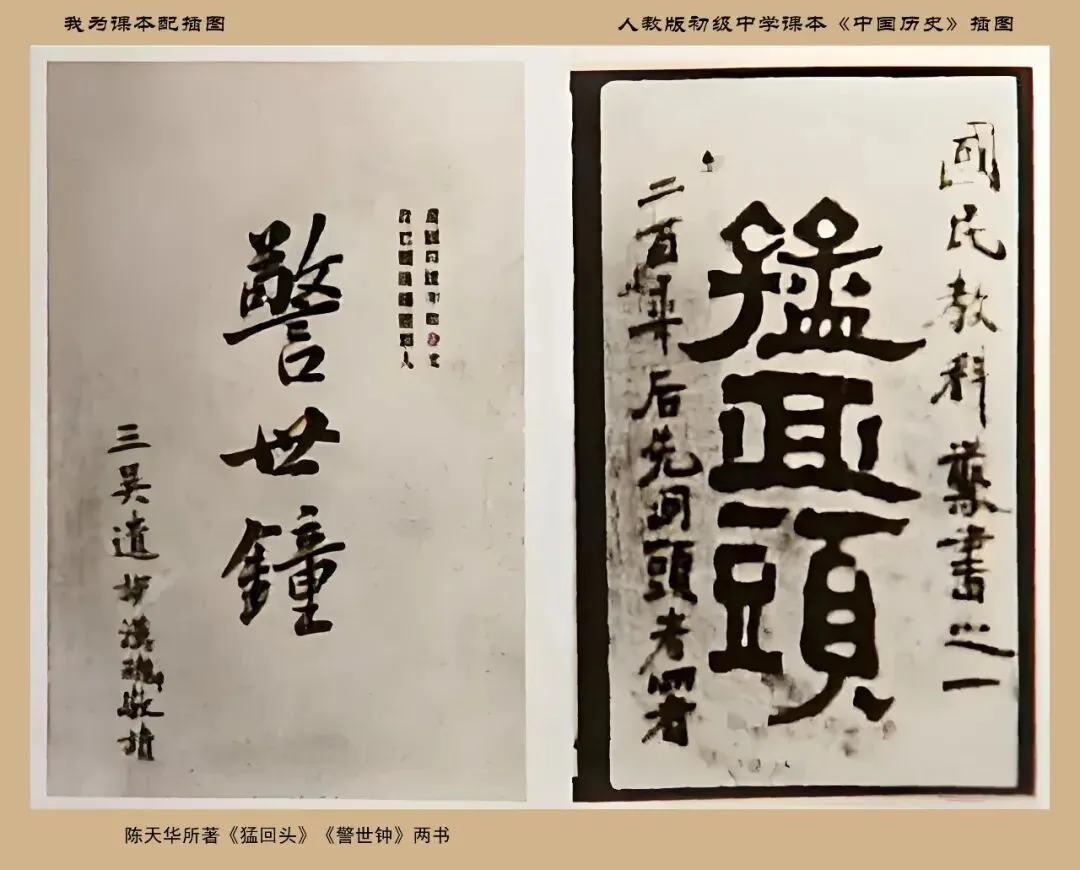 我为课本配插图
人教版初级中学课本《中国历史》插图
警世鐘
三吴遺
國民教科叢書之一
猛回頭
二百年后先回頭者
陈天华所著《猛回头》《警世钟》两书